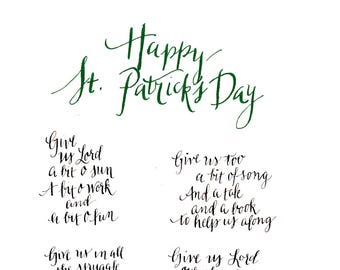 Happy
St. Patrick's Day
Give
us Lord
a bit o sun
A bit o work
and
a bit o fun
Give us too
a bit of song
And a tale
and a book
to help us along
Give us in all
the struggle
Give us Lord